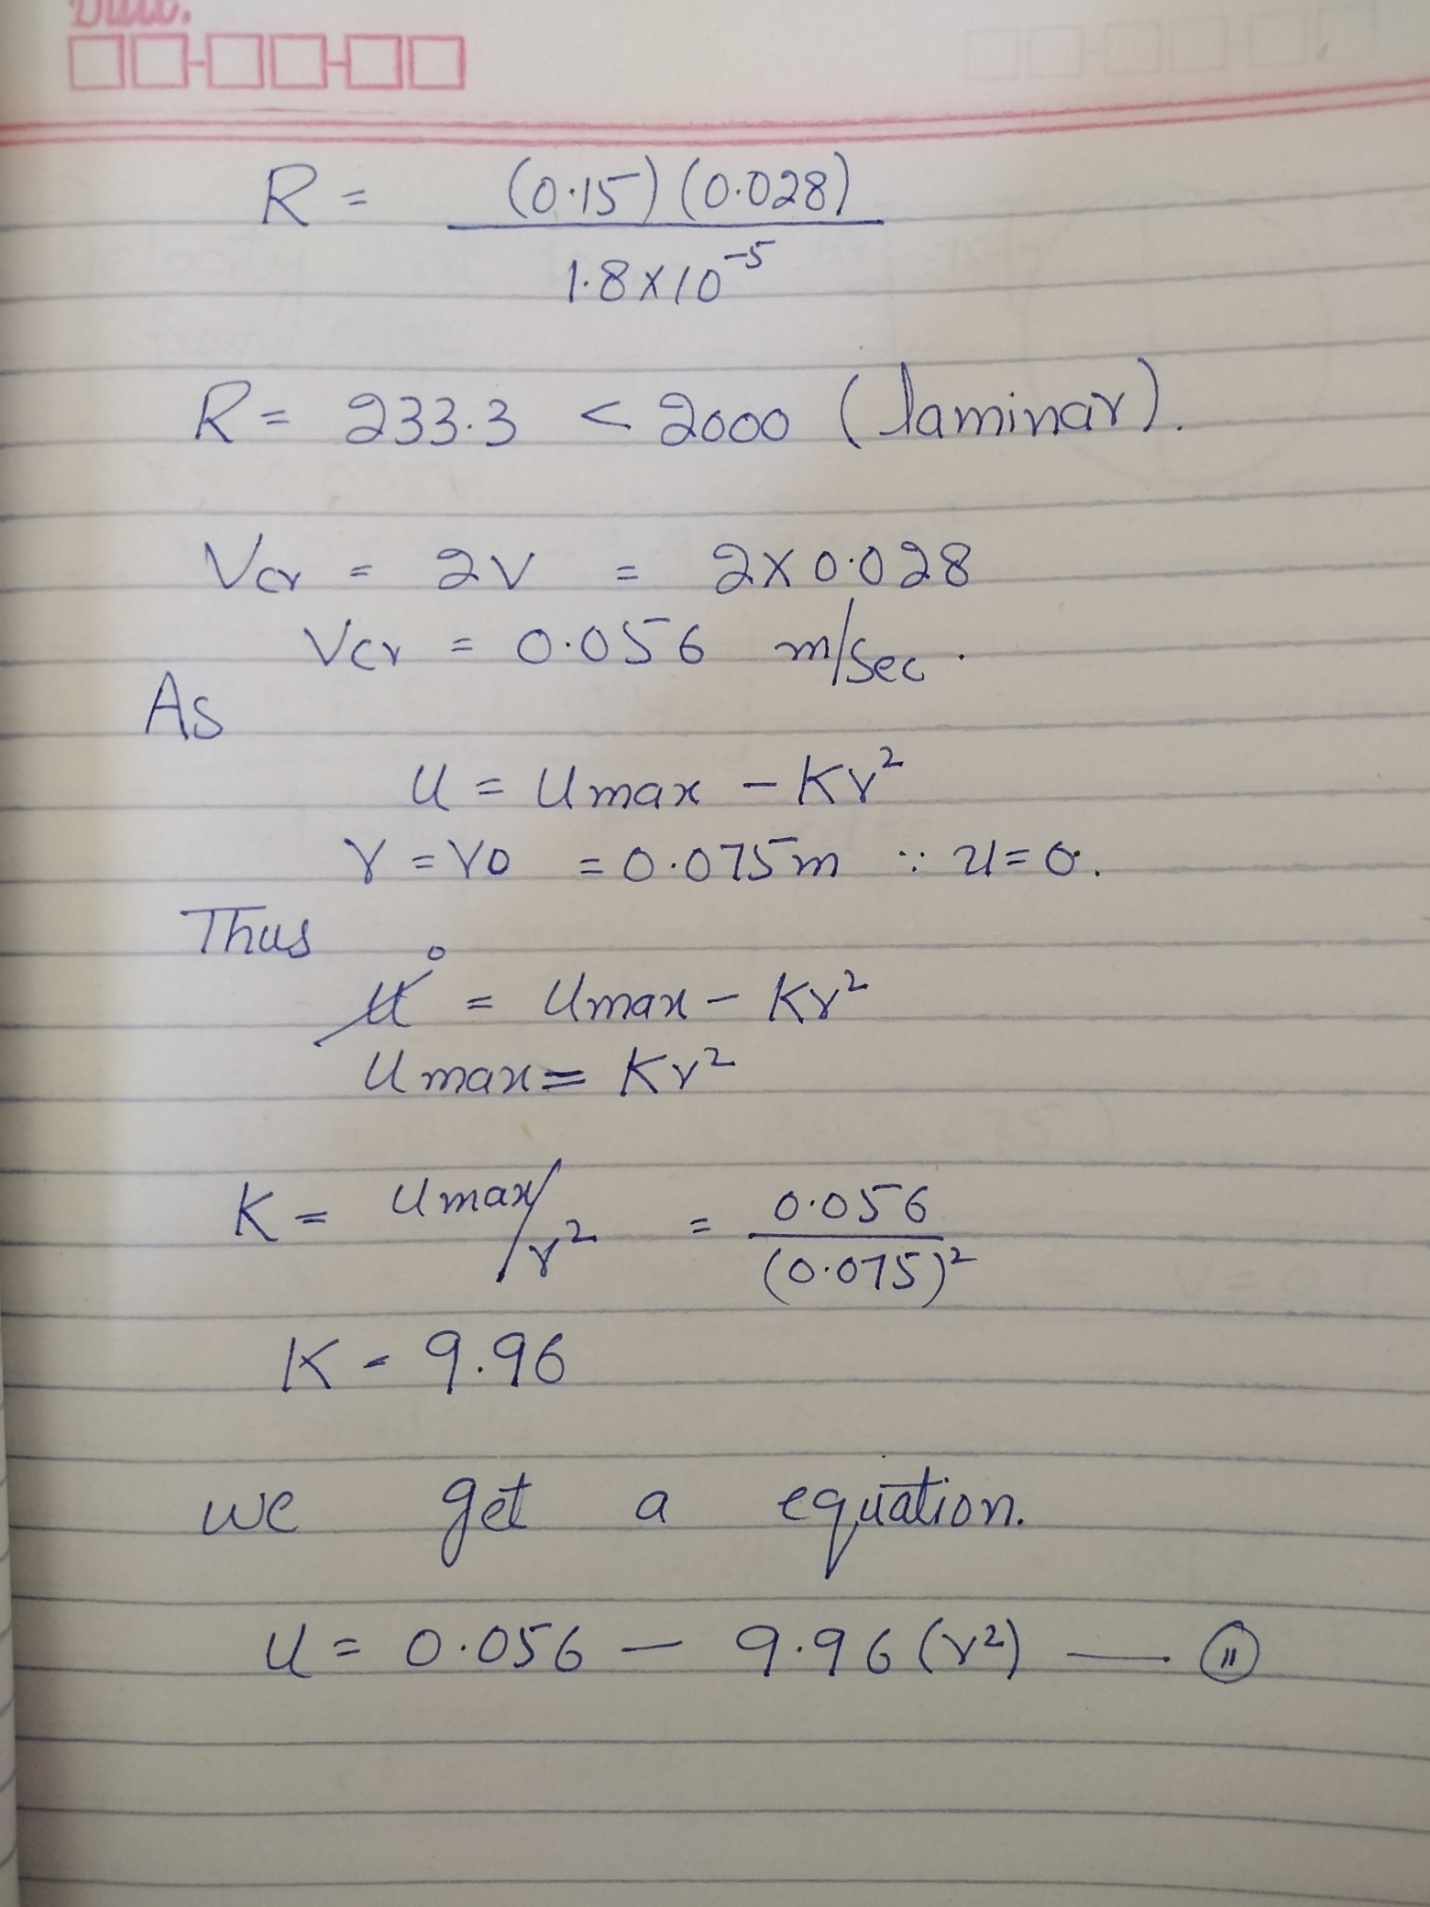 Date.
R = (0.15) (0.028)
1.8 x 10^-5
R = 233.3 < 2000 (laminar).
Vcr = 2V = 2 x 0.028
Vcr = 0.056 m/sec.
As
u = umax - Kr²
r = ro = 0.075m ∵ u = 0.
Thus
u⁰ = umax - Kr²
umax = Kr²
K = umax/r² = 0.056
(0.075)²
K = 9.96
we get a equation.
u = 0.056 - 9.96 (r²) — (11)